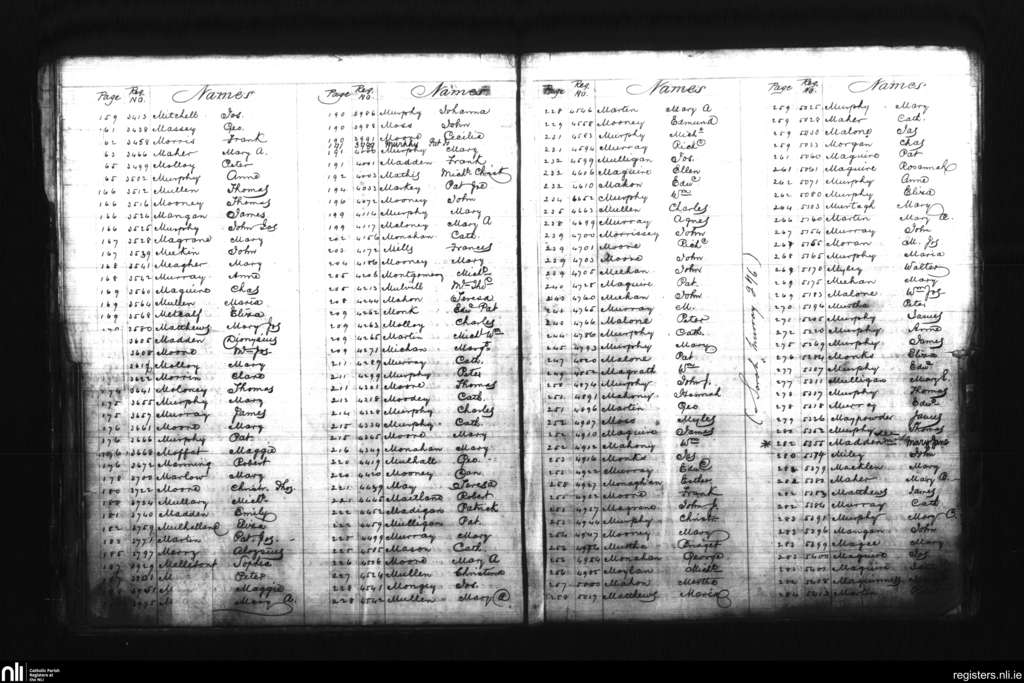 Page Reg. No. Names
159 3413 Mitchell Jos.
161 3438 Massey Geo.
62 3458 Morris Frank
63 3466 Maher Mary A.
65 3499 Molloy Peter
65 3502 Murphy Anne
166 3512 Mullen Thomas
166 3516 Mooney Thomas
166 3526 Mangan James
166 3525 Murphy John Jos
167 3528 Magrane Mary
167 3539 Meehan John
168 3541 Meagher Mary
168 3542 Murray Anne
169 3560 Maguire Chas
169 3564 Mullen Maria
169 3568 Metcalf Eliza
3580 Matthews Mary Jos
3605 Madden Dionysius
3608 Moore Wm Jos.
Molloy Mary
3622 Morrin Clare
3641 Moloney Thomas
3655 Murphy Mary
3657 Murray James
176 3661 Moore Mary
176 3666 Murphy Pat
3668 Moffat Maggie
196 3672 Manning Robert
178 3700 Marlow Mary
180 3722 Moore Christr Thos.
3734 Mullary Michl
181 3740 Madden Emily
182 3759 Mulholland Rose
183 3771 Martin Pat Jos.
185 3797 Merry Aloysius
187 3929 Mellefont Sophie
M Peter
M Maggie
M Mary A.
Page Reg. No. Names
190 3986 Murphy Johanna
190 3988 Moss John
190 3991 Moore Cecilia
191 Murphy Pat
191 4000 Murphy Mary
191 4001 Madden Frank
192 4003 Mathis Michl Christ
194 4033 Markey Pat Jos
196 4072 Mooney John
199 4116 Murphy Mary
199 4117 Maloney Mary A
202 4156 Monahan Cath.
203 4172 Mills Frances
204 4186 Mooney Mary
205 4206 Montgomery Michl
205 4213 Mulvill Wm Thos
208 4244 Mahon Teresa
209 4262 Monk Edwd Pat
209 4263 Molloy Charles
209 4265 Martin Michl Wm
209 4271 Michan Mary
211 4289 Murray Cath.
211 4299 Murphy Peter
211 4301 Moore Thomas
213 4318 Moodey Cath.
214 4328 Murphy Charles
215 4334 Murphy Cath.
215 4345 Moore Mary
216 4349 Monahan Mary
220 4419 Mulhall Geo.
220 4420 Mooney Dan
221 4439 May Teresa
221 4445 Maitland Robert
222 4452 Madigan Patrick
222 4459 Mulligan Pat
225 4499 Murray Mary
225 4505 Mason Cath.
226 4508 Moore Mary A
227 4524 Mullen Christina
228 4541 Mongey Jos.
228 4542 Mullen Mary A
Page Reg. No. Names
228 4546 Martin Mary A
229 4558 Mooney Edmund
231 4583 Murphy Michl
231 4594 Murray Richd
232 4599 Mulligan Jos.
232 4606 Maguire Ellen
232 4610 Mahon Edwd
234 4652 Murphy Wm
235 4663 Mullen Charles
238 4699 Murray Agnes
239 4700 Morrissey John
239 4701 Moore Richd
239 4703 Moore John
239 4705 Meehan John
240 4728 Maguire Pat
240 4760 Meehan John
4765 Murray M.
4766 Malone Peter
244 4786 Murphy Cath.
245 4793 Murphy Mary
247 4820 Malone Pat
249 4852 Magrath Wm
250 4874 Murphy John J.
252 4891 Mahoney Hannah
251 4896 Martin Geo
252 4907 Moss Myles
252 4910 Maguire James
252 4912 Mahony Wm
4916 Monks Jas
4922 Murray Edwd
4927 Monaghan Esther
4932 Moore Frank
4937 Magrane John J.
4944 Murphy Christr
4947 Mooney Mary
4976 Murtha Bridget
4984 Monahan George
256 4985 Moylan Michl
257 5000 Mahon Martha
258 5017 Matthews Maria
(Look Murray 2916)
Page Reg. No. Names
259 5025 Murphy Mary
259 5028 Maher Cath.
259 5030 Malone Jas
259 5033 Morgan Chas
261 5060 Maguire Pat
261 5061 Maguire Rosannah
262 5071 Murphy Anne
262 5080 Murphy Eliza
264 5103 Murtagh Mary
266 5140 Martin Mary A.
267 5154 Murray John
268 5165 Moran M. Jos
268 5165 Murphy Maria
269 5170 Myley Walter
269 5175 Meehan Mary
269 5183 Malone Wm Jos.
270 5194 Murtha Peter
271 5205 Murphy James
272 5220 Murphy Anne
275 5269 Murphy James
276 5284 Monks Eliza
277 5307 Murphy Edwd
277 5311 Mulligan Mary E.
278 5317 Murphy Thomas
278 5318 Murray Edwd
279 5326 Maypowder James
280 5352 Murphy Thomas
* 282 5355 Madden Mary Jane
280 5374 Miley John
5379 Macklen Mary
282 5382 Maher Mary A.
282 5383 Matthews James
282 5386 Murray Cath
283 5391 Murphy Mary C.
283 5396 Mangan John
283 5399 Magee Mary
283 5400 Maguire Jos
283 5403 Maguire
5408 Maguinness
284 5413 Martin
nli Catholic Parish Registers at the NLI
registers.nli.ie